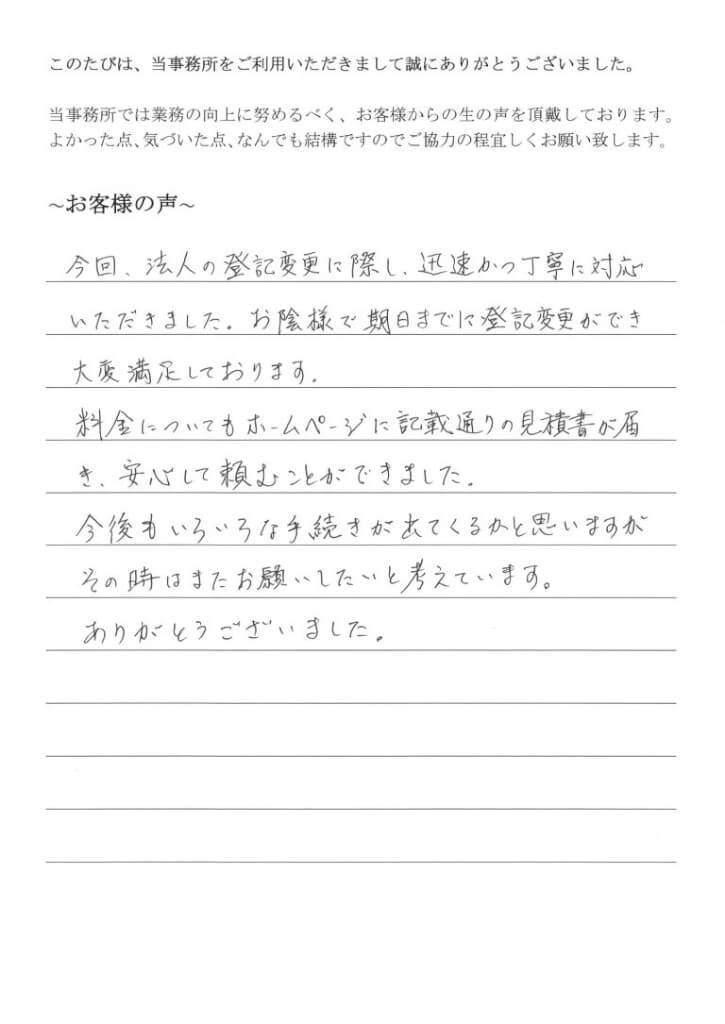 このたびは、当事務所をご利用いただきまして誠にありがとうございました。
当事務所では業務の向上に努めるべく、お客様からの生の声を頂戴しております。
よかった点、気づいた点、なんでも結構ですのでご協力の程宜しくお願い致します。
~お客様の声~
今回、法人の登記変更に際し、迅速かつ丁寧に対応
いただきました。お陰様で期日までに登記変更ができ
大変満足しております。
料金についてもホームページに記載通りの見積書が届
き、安心して頼むことができました。
今後もいろいろな手続きが出てくるかと思いますが
その時はまたお願いしたいと考えています。
ありがとうございました。